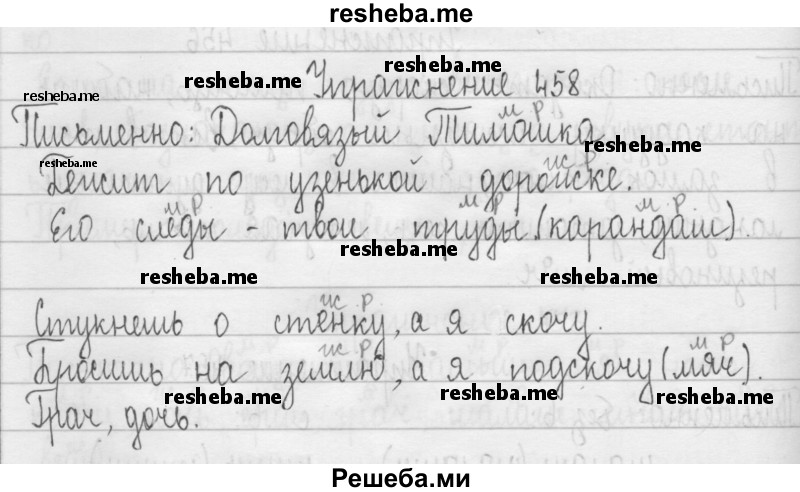 resheba.me
Упражнение 458
resheba.me resheba.me
Письменно: Долговязый Тимошка м.р
resheba.me
Бежит по узенькой дорожке. ж.р.
resheba.me
Его следы - твои труды (карандаш). м.р м.р м.р
resheba.me
resheba.me resheba.me
Стукнешь о стенку, а я скочу. ж.р.
Бросишь на землю, а я подскочу (мяч). ж.р. м.р
resheba.me resheba.me resheba.me
Грач, дочь.
Решеба.ми